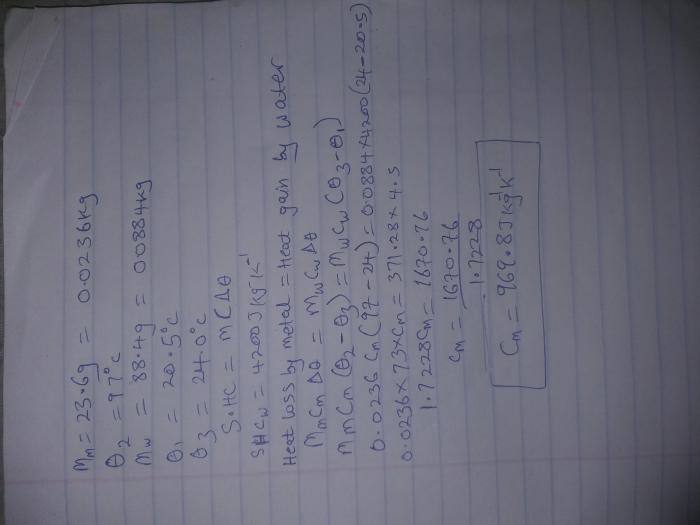 Mm = 23.6g = 0.0236kg
θ2 = 97°C
Mw = 88.4g = 00884kg
θ1 = 20.5°C
θ3 = 24.0°C
S.HC = MCΔθ
SHCw = 4200JKg⁻¹K⁻¹
Heat loss by metal = Heat gain by water
MmCmΔθ = MwCwΔθ
MmCm(θ2-θ3) = MwCw(θ3-θ1)
0.0236 Cm(97-24) = 0.0884×4200(24-20.5)
0.0236×73×Cm = 371.28×4.5
1.7228Cm = 1670.76
Cm = 1670.76
1.7228
Cm = 969.8JKg⁻¹K⁻¹